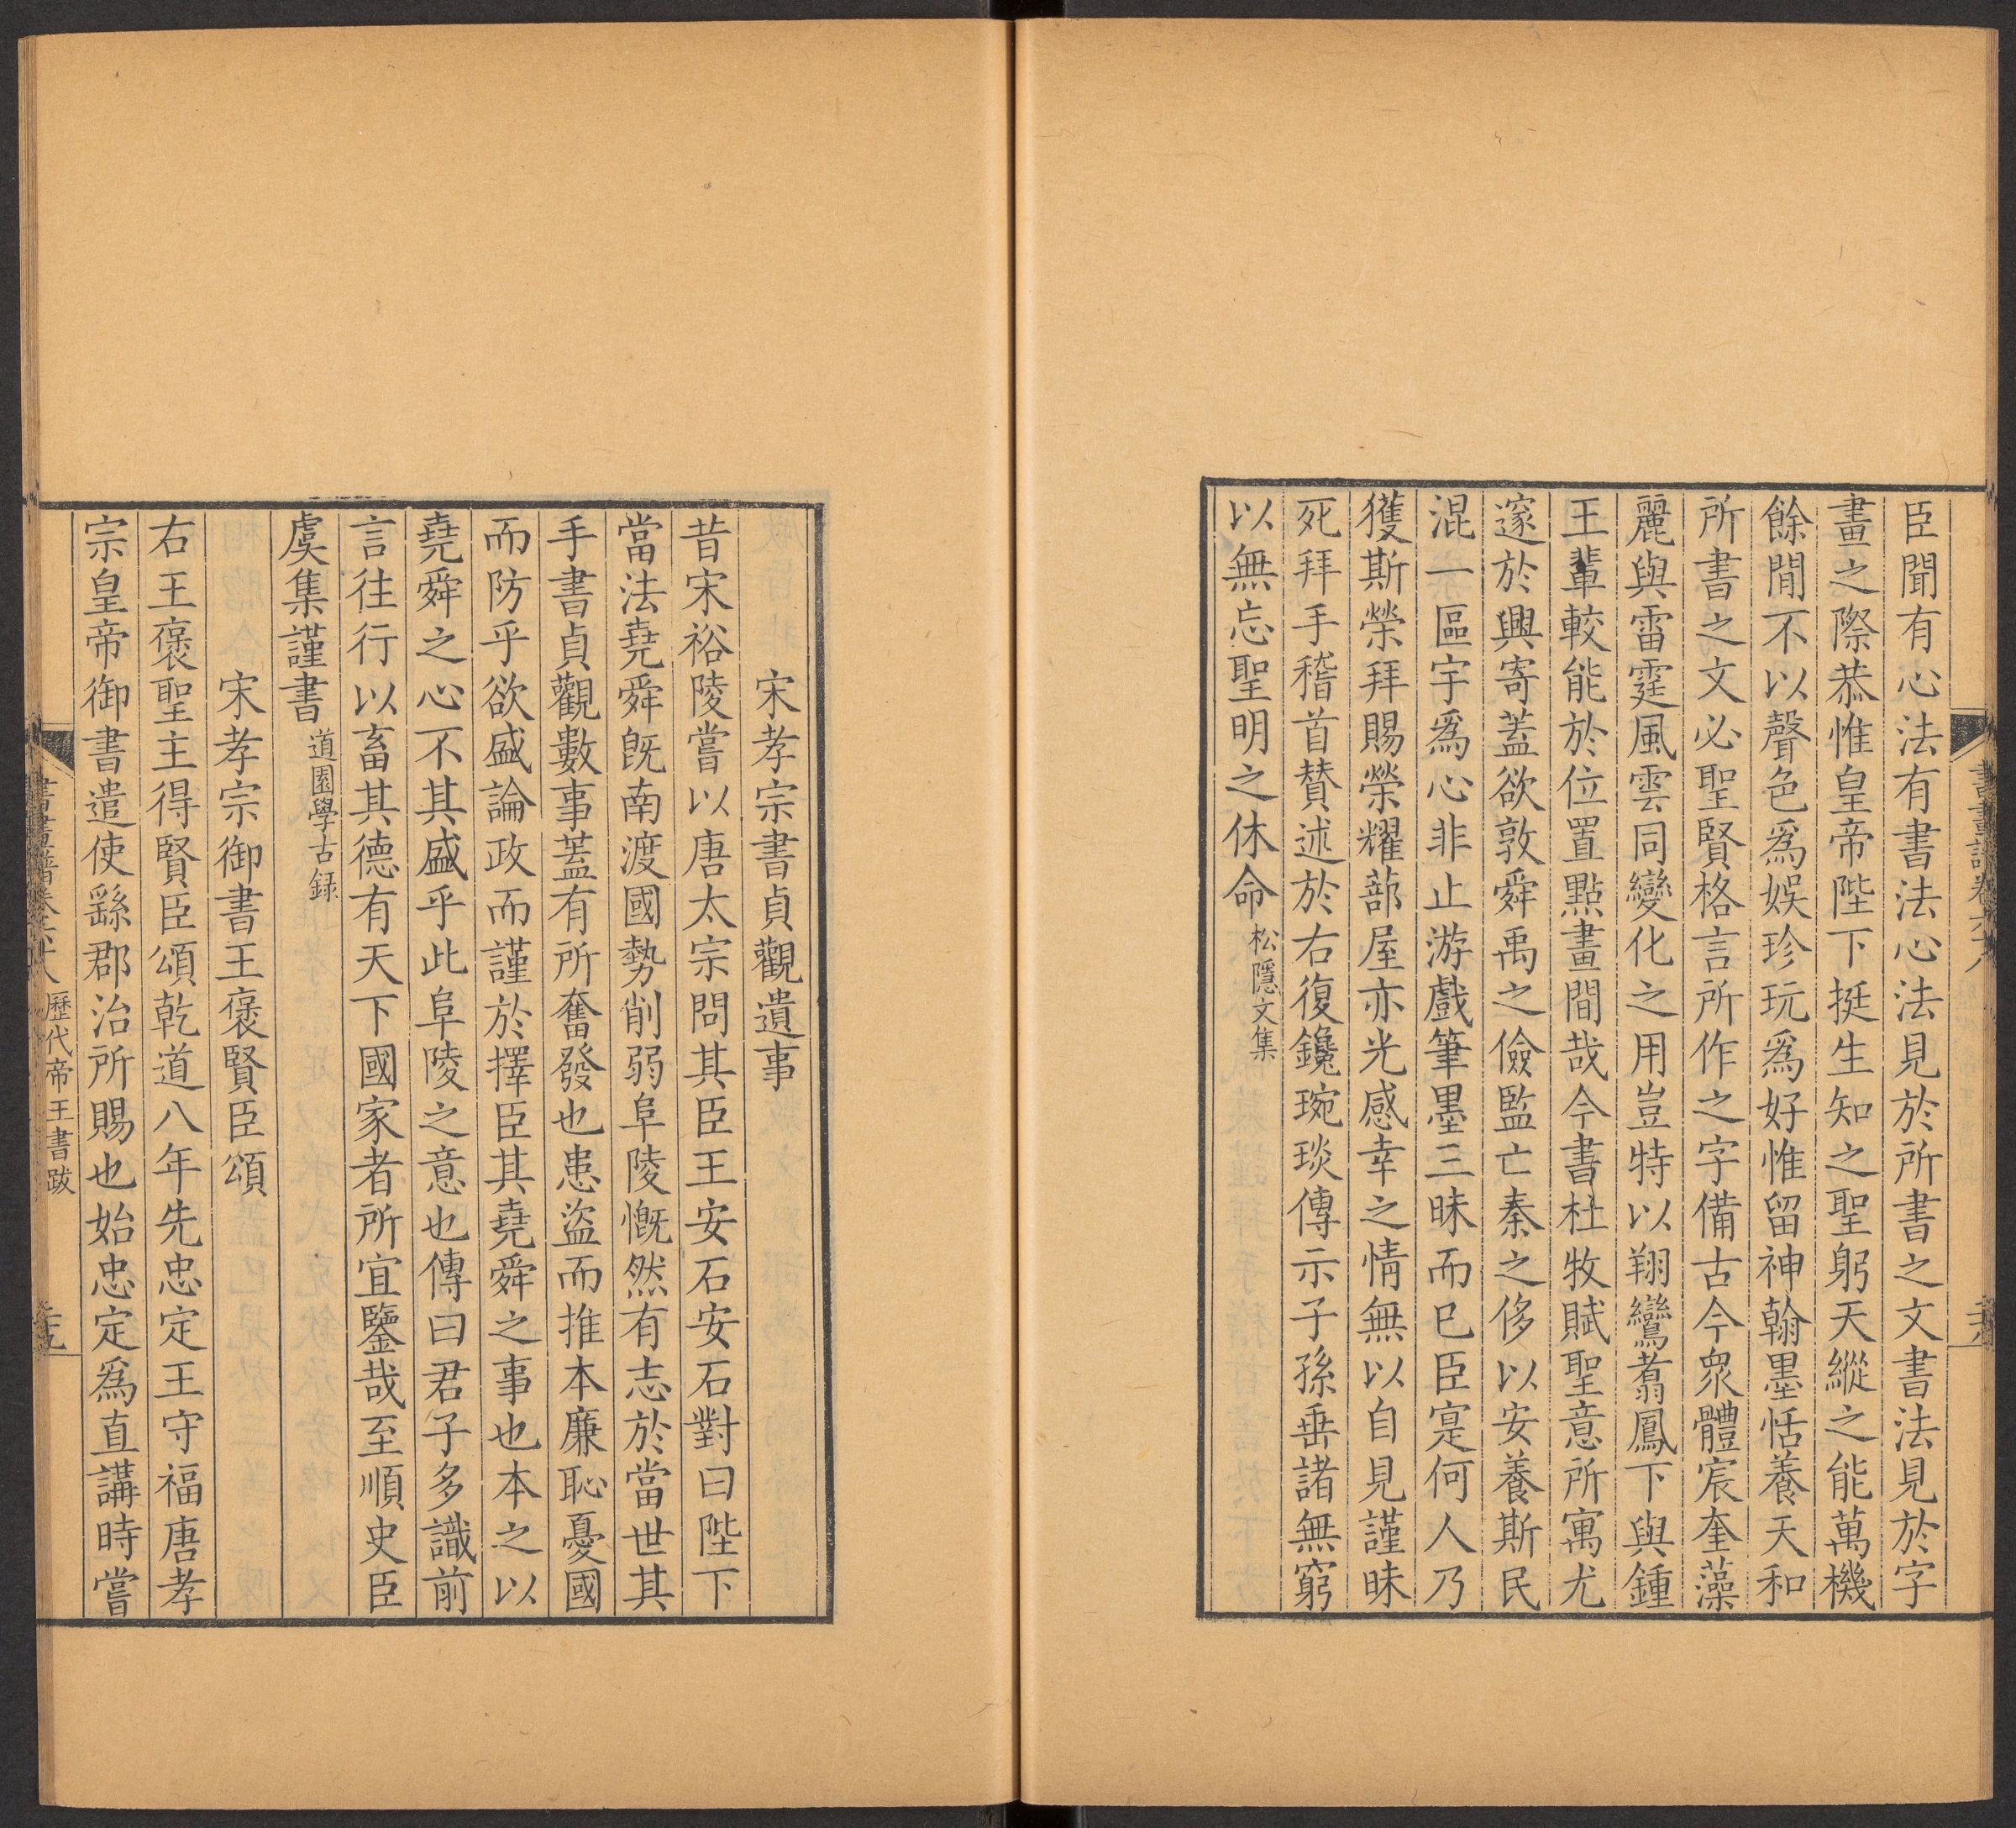 臣聞有心法有書法心法見於所書之文書法見於字
畫之際恭惟皇帝陛下挺生知之聖躬天縱之能萬機
餘閒不以聲色爲娛珍玩爲好惟留神翰墨恬養天和
所書之文必聖賢格言所作之字備古今衆體宸奎藻
麗與雷霆風雲同變化之用豈特以翔鸞翥鳳下與鍾
王輩較能於位置點畫間哉今書杜牧賦聖意所寓尤
邃於興寄蓋欲敦舜禹之儉監亡秦之侈以安養斯民
混一區宇爲心非止游戲筆墨三昧而已臣寔何人乃
獲斯榮拜賜榮耀蔀屋亦光感幸之情無以自見謹昧
死拜手稽首賛述於右復鑱琬琰傳示子孫垂諸無窮
以無忘聖明之休命松隱文集
宋孝宗書貞觀遺事
昔宋裕陵嘗以唐太宗問其臣王安石安石對曰陛下
當法堯舜旣南渡國勢削弱阜陵慨然有志於當世其
手書貞觀數事蓋有所奮發也患盜而推本廉恥憂國
而防乎欲盛論政而謹於擇臣其堯舜之事也本之以
堯舜之心不其盛乎此阜陵之意也傳曰君子多識前
言往行以畜其德有天下國家者所宜鑒哉至順史臣
虞集謹書道園學古録
宋孝宗御書王褒賢臣頌
右王褒聖主得賢臣頌乾道八年先忠定王守福唐孝
宗皇帝御書遣使繇郡治所賜也始忠定爲直講時嘗
書畫譜卷六十八 歷代帝王書跋